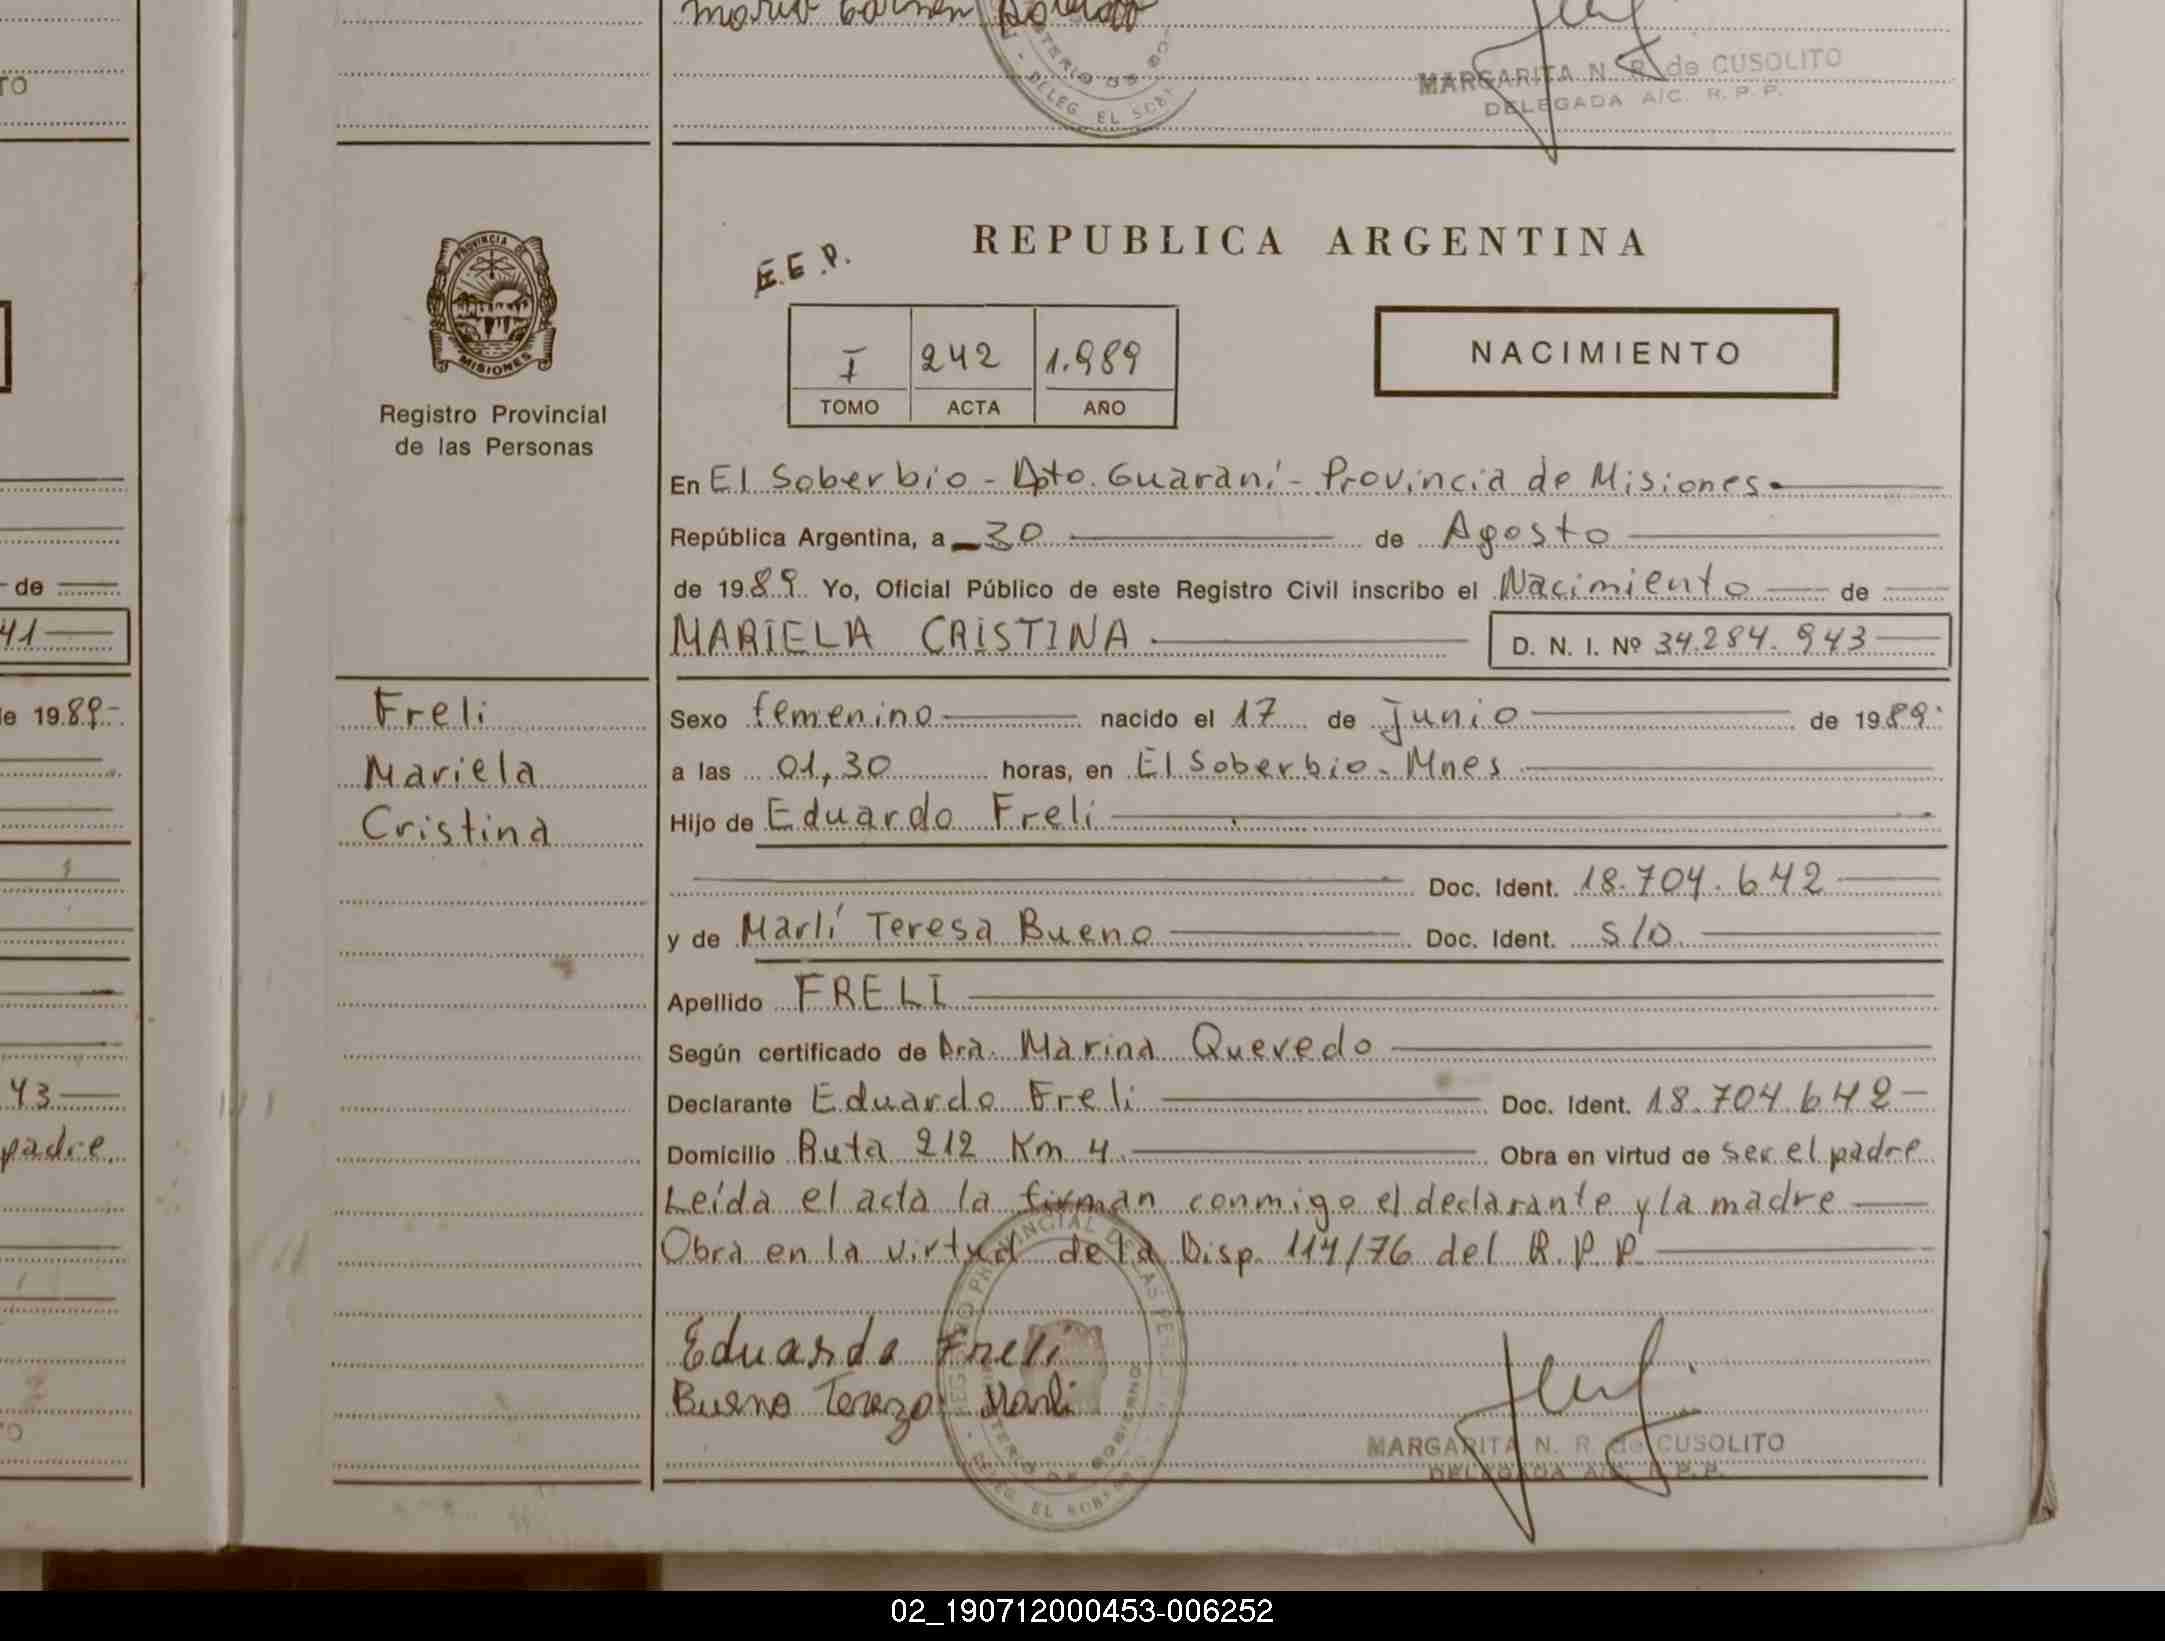 Maria Carmen
MINISTERIO DE GO
DELEG. EL SOBE
MARGARITA N. R. de CUSOLITO
DELEGADA A/C. R. P. P.
TO
de
41
de 1989
43
padre
TO
PROVINCIA DE
MISIONES
Registro Provincial
de las Personas
Freli
Mariela
Cristina
REPUBLICA ARGENTINA
E.E.P.
I 242 1.989
TOMO ACTA AÑO
NACIMIENTO
En El Soberbio - Dpto. Guaraní - Provincia de Misiones.
República Argentina, a 30 de Agosto
de 1989. Yo, Oficial Público de este Registro Civil inscribo el Nacimiento de
MARIELA CRISTINA
D. N. I. Nº 34.284.943
Sexo femenino nacido el 17 de junio de 1989
a las 01,30 horas, en El Soberbio - Mnes
Hijo de Eduardo Freli
Doc. Ident. 18.704.642
y de Marlí Teresa Bueno Doc. Ident. S/D
Apellido FRELI
Según certificado de Dra. Marina Quevedo
Declarante Eduardo Freli Doc. Ident. 18.704.642
Domicilio Ruta 212 Km 4 Obra en virtud de ser el padre
Leída el acta la firman conmigo el declarante y la madre
Obra en la virtud de la Disp. 114/76 del R.P.P.
Eduardo Freli
Bueno Tereza Marli
REGISTRO PROVINCIAL DE LAS PE
MINISTERIO DE GOBIERNO
DELEG. EL SOBERBIO
MARGARITA N. R. de CUSOLITO
DELEGADA A/C. R. P. P.
02_190712000453-006252